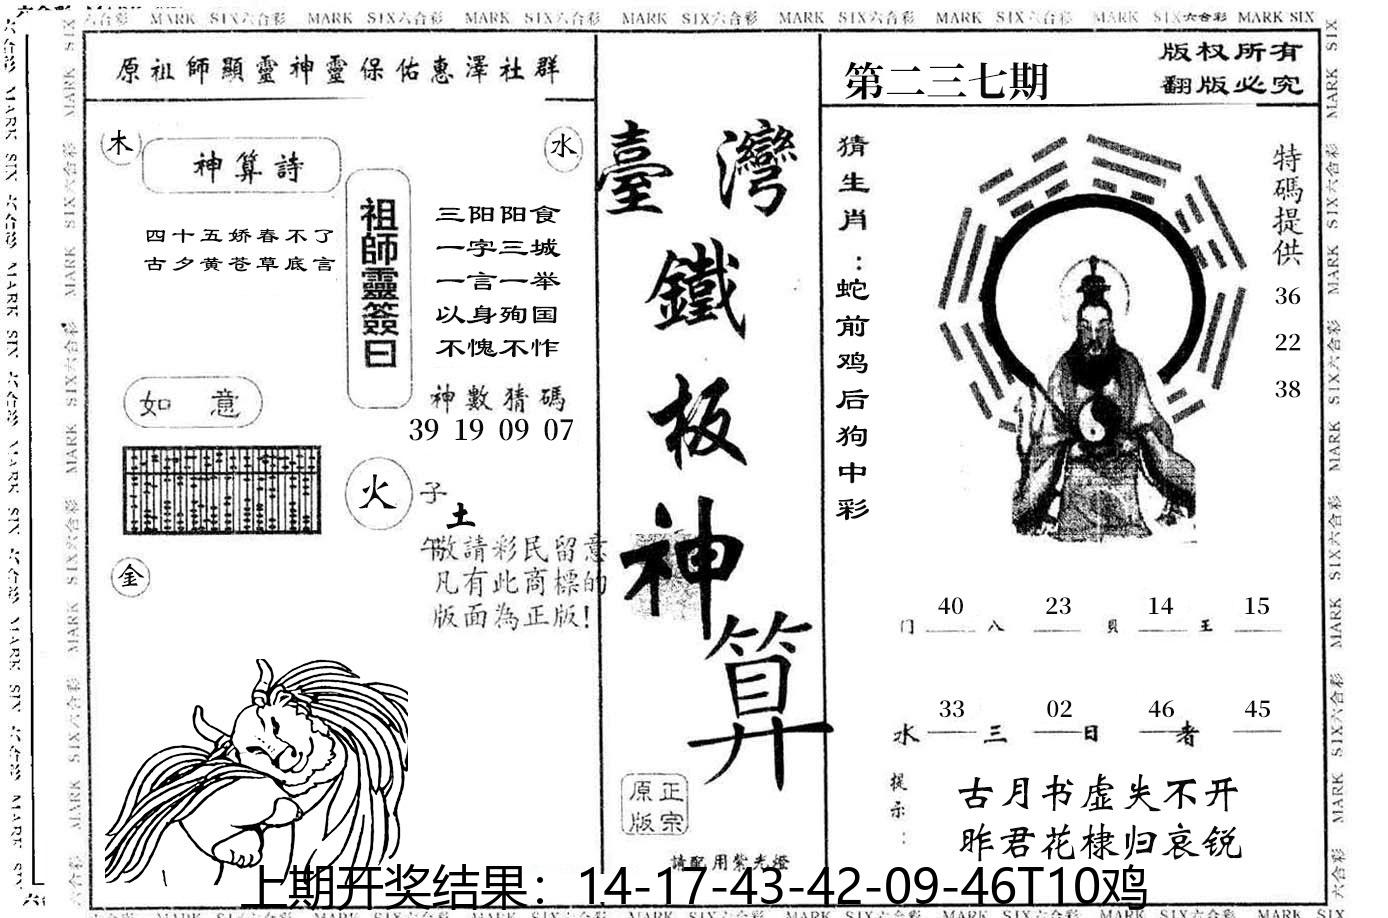 MARK SIX六合彩 MARK SIX六合彩 MARK SIX六合彩 MARK SIX六合彩 MARK SIX六合彩 MARK SIX六合彩 MARK SIX六合彩 MARK SIX
原祖師顯靈神靈保佑惠澤社群
木
水
神算詩
四十五娇春不了
古夕黄苍草底言
祖師靈簽曰
三阳阳食
一字三城
一言一举
以身殉国
不愧不怍
神數猜碼
39 19 09 07
如意
火
子
土
午
金
敬請彩民留意
凡有此商標的
版面為正版!
臺灣
鐵
板
神
算
原正
版宗
請配用紫光燈
第二三七期
版权所有
翻版必究
猜生肖:蛇前鸡后狗中彩
特碼提供
36
22
38
40 23 14 15
门 八 貝 王
33 02 46 45
水 三 日 者
提示:
古月书虚失不开
昨君花棣归哀锐
上期开奖结果:14-17-43-42-09-46T10鸡